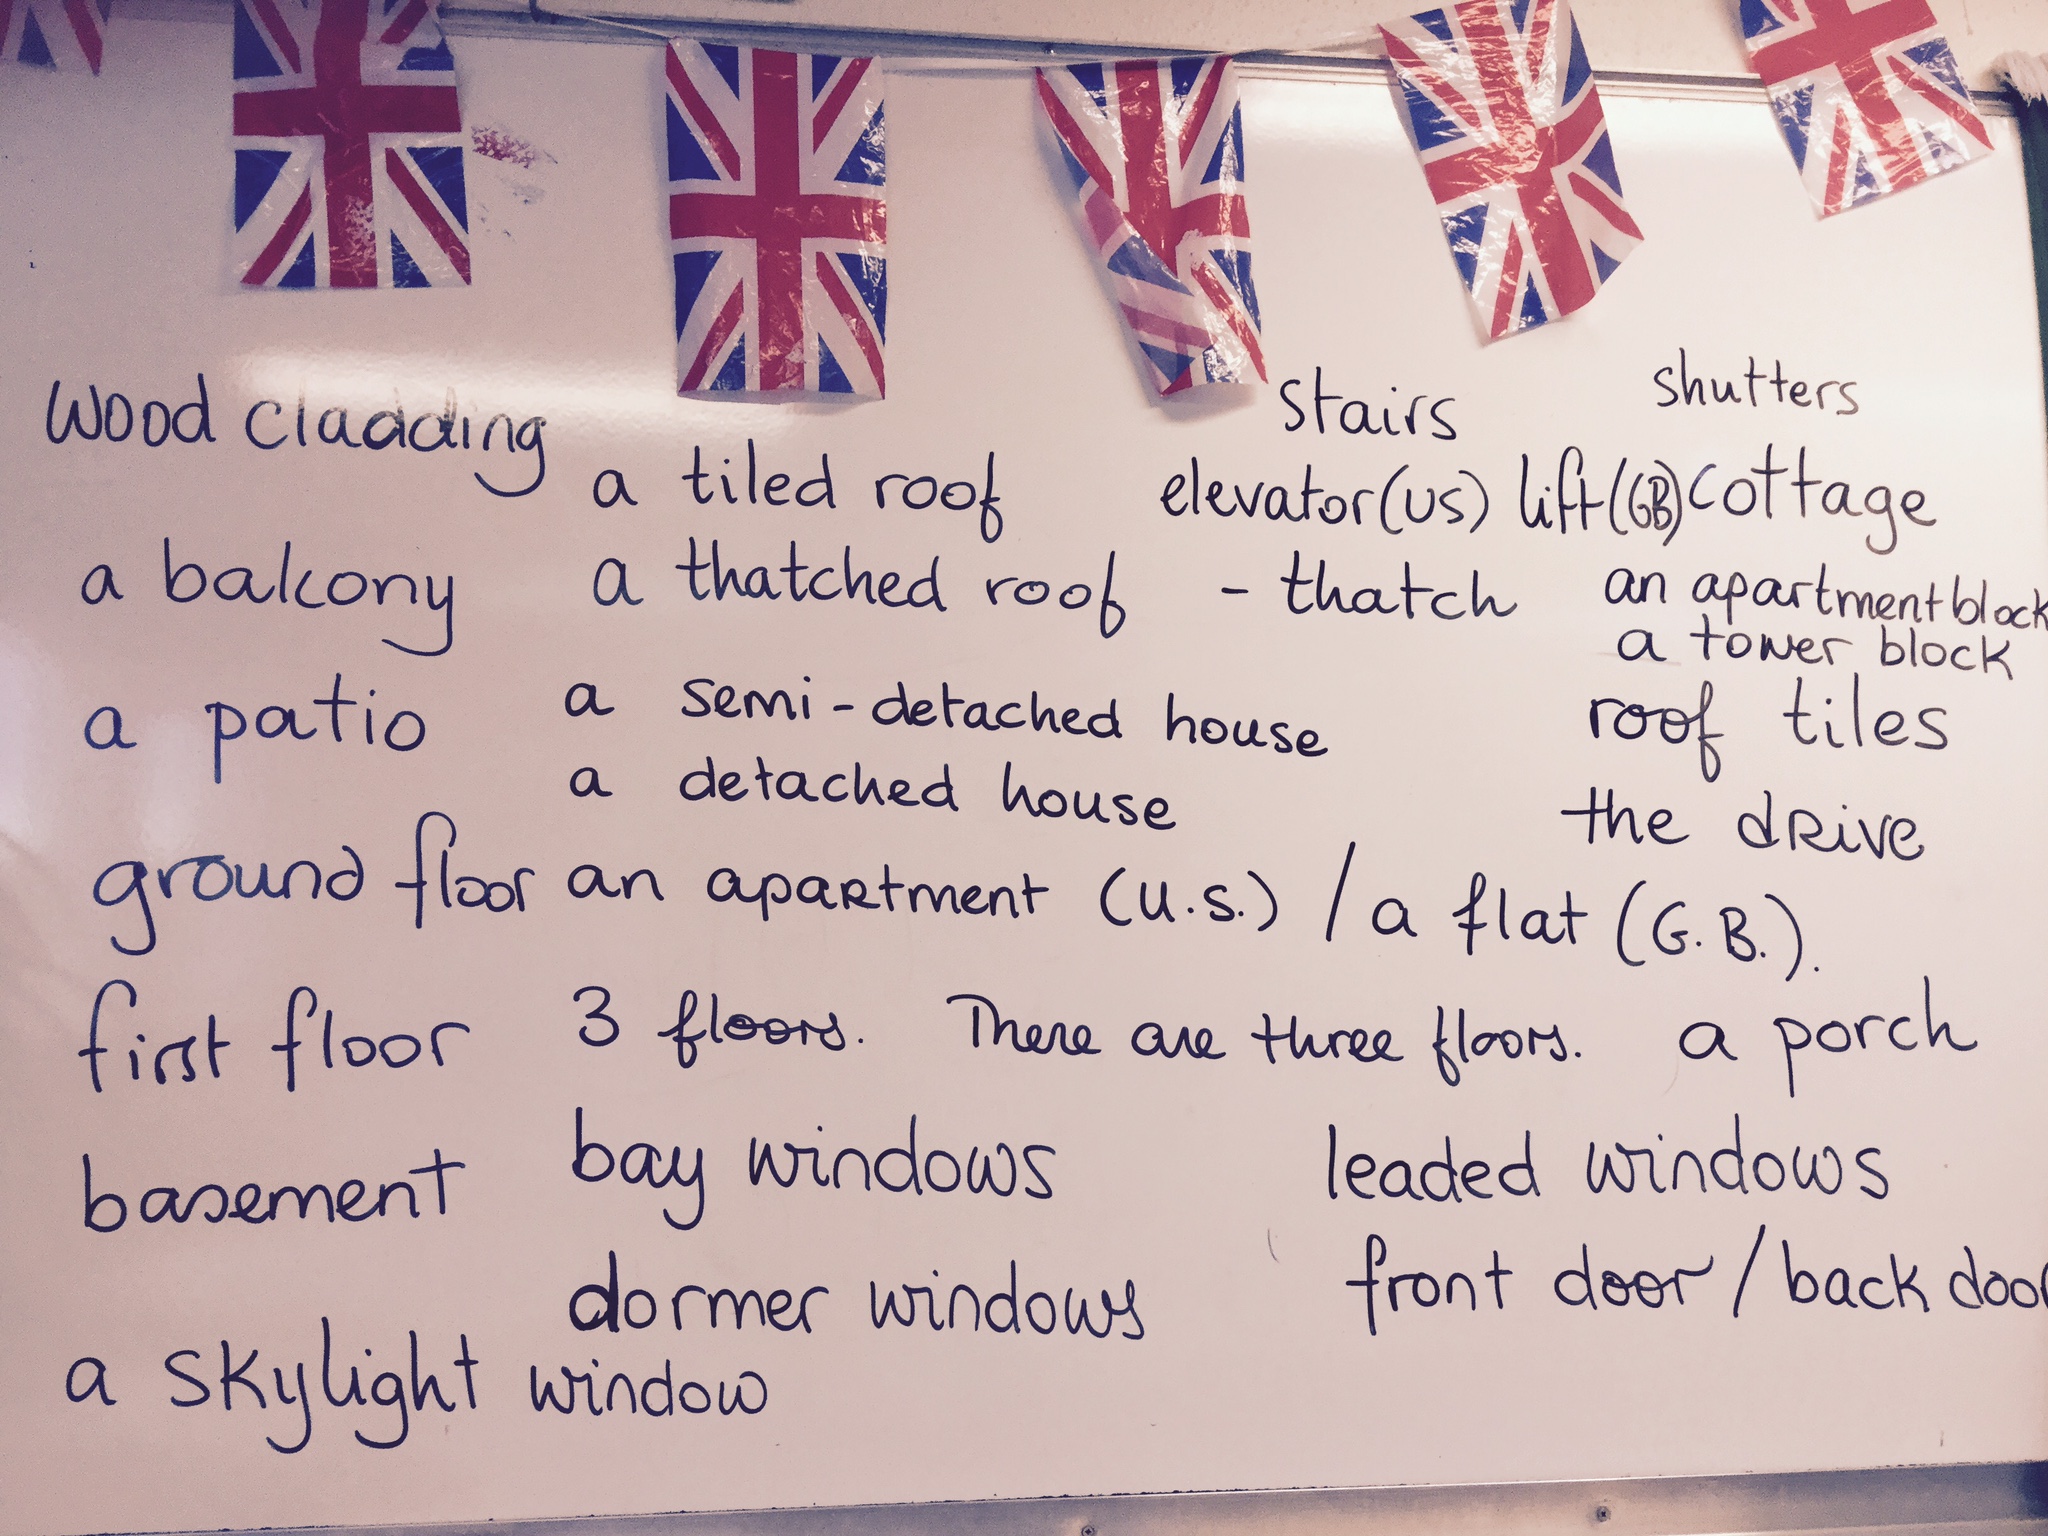 wood cladding
a balcony
a patio
ground floor
first floor
basement
a skylight window
a tiled roof
a thatched roof - thatch
a semi-detached house
a detached house
an apartment (U.S.) / a flat (G.B.).
3 floors. There are three floors.
bay windows
dormer windows
stairs
elevator(US) lift(GB)
shutters
cottage
an apartment block
a tower block
roof tiles
the drive
a porch
leaded windows
front door / back doo